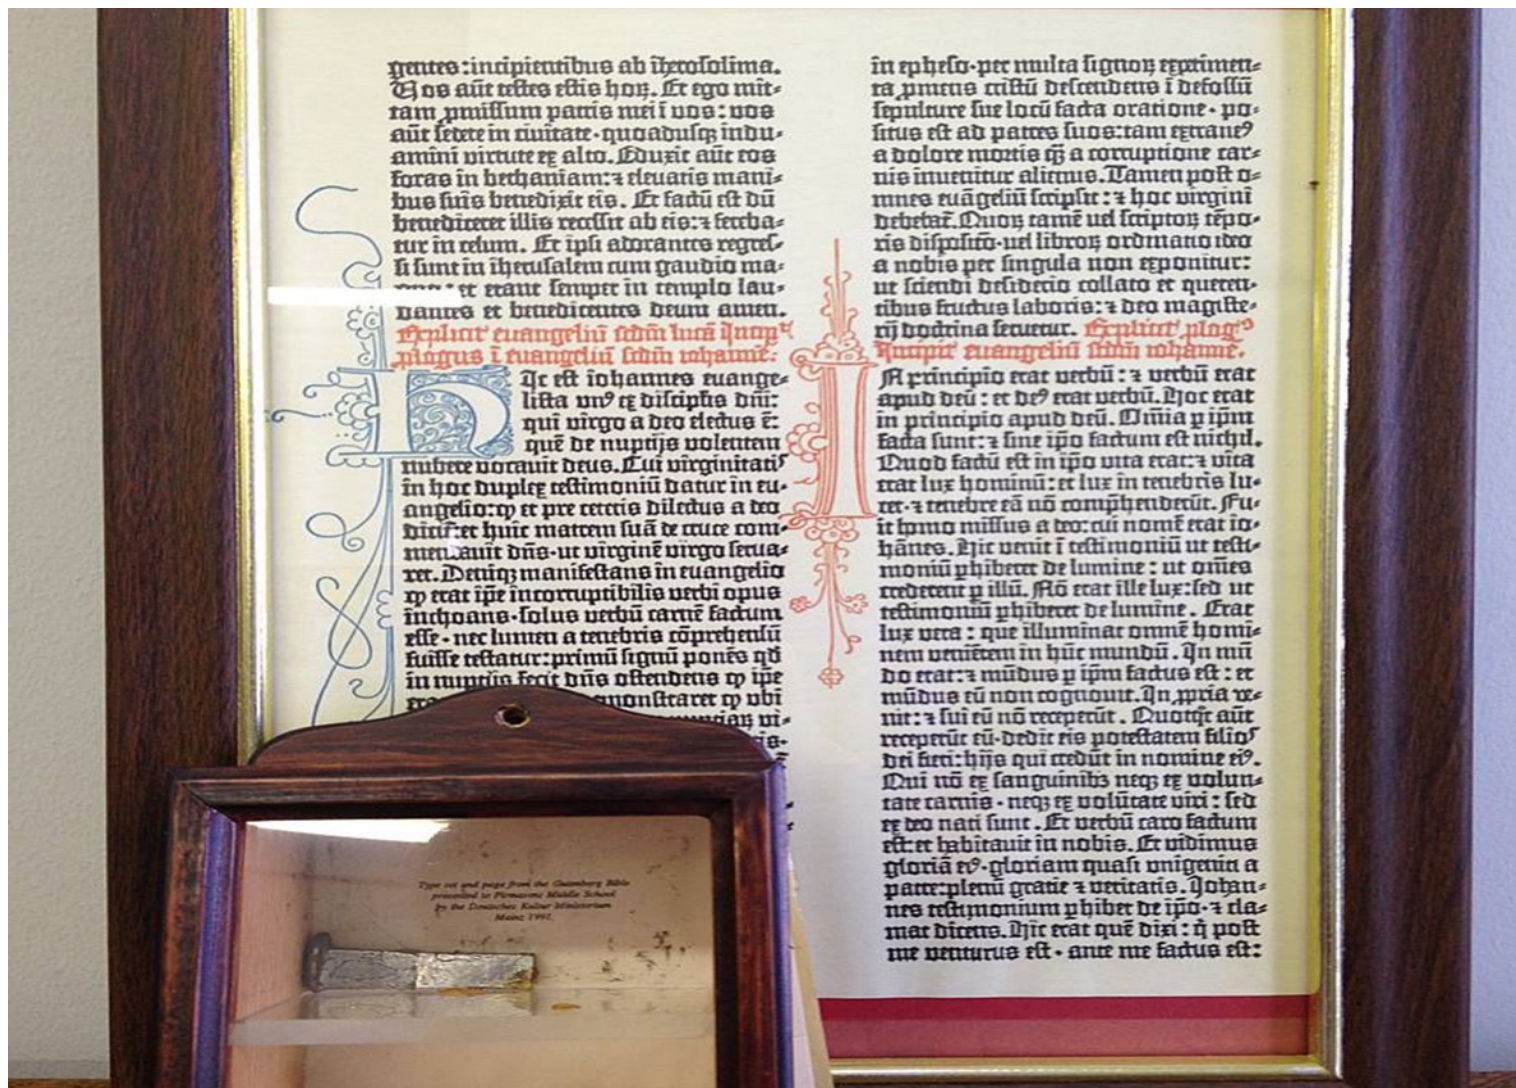 gentes : incipientibus ab iherosolima.
Vos aūt testes estis hoꝝ. Et ego mit-
tam ꝓmissum patris mei ī vos : vos
aūt sedete in civitate · quoadusqꝫ indu-
amini virtute ex alto. Eduxit aūt eos
foras in bethaniam : ⁊ elevatis mani-
bus suis benedixit eis. Et factū est dū
benediceret illis recessit ab eis : ⁊ fereba-
tur in celum. Et ipsi adorantes regres-
si sunt in iherusalem cum gaudio ma-
et erant semper in templo lau-
dantes et benedicentes deum amen.
Explicit euangeliū scdm̄ lucā Incipit
ꝓlogus ī euangeliū scdm̄ iohannē :
Hic est iohannes euange-
lista vnꝰ ex discipl̄is dn̄i :
qui virgo a deo electus ē :
quē de nuptijs volentem
nubere vocauit deus. Cui virginitatis
in hoc duplex testimoniū datur in eu-
angelio : ꝙ et pre ceteris dilectus a deo
dicit͛ et huic matrem suā de cruce com-
mendauit dn̄s · ut virginē virgo serua-
ret. Deniqꝫ manifestans in euangelio
ꝙ erat ip̄e incorruptibilis verbi opus
inchoans · solus verbū carnē factum
esse · nec lumen a tenebris cōprehensū
fuisse testatur : primū signū ponēs qd̄
in nuptijs fecit dn̄s ostendens ꝙ ip̄e
monstraret ꝙ ubi
vi-
in epheso · per multa signoꝝ experimen-
ta ꝓmens cristū descendens ī defossū
sepulture sue locū facta oratione · po-
situs est ad patres suos : tam extraneꝰ
a dolore mortis q̄ȝ a corruptione car-
nis invenitur alienus. Tamen post o-
mnes euāgeliū scripsit : ⁊ hoc virgini
debebat͛. Quoꝝ tamē vel scriptoꝝ tēpo-
ris dispositō · vel libroꝝ ordinatio ideo
a nobis per singula non exponitur :
ut sciendi desiderio collato et queren-
tibus fructus laboris : ⁊ deo magiste-
rij doctrina seruetur. Explicit ꝓlogꝰ
Incipit euangeliū scdm̄ iohannē.
In principio erat verbū : ⁊ verbū erat
apud deū : et deꝰ erat verbū. Hoc erat
in principio apud deū. Omīa ꝑ ip̄m
facta sunt : ⁊ sine ip̄o factum est nichil.
Quod factū est in ip̄o vita erat : ⁊ vita
erat lux hominū : et lux in tenebris lu-
cet · ⁊ tenebre eā nō comp̄henderūt. Fu-
it homo missus a deo : cui nomē erat io-
hānes. Hic venit ī testimoniū ut testi-
moniū ꝑhiberet de lumine : ut om̄es
crederent ꝑ illū. Nō erat ille lux : sed ut
testimoniū ꝑhiberet de lumine. Erat
lux vera : que illuminat omnē homi-
nem veniētem in hūc mundū. In mū
do erat : ⁊ mūdus ꝑ ip̄m factus est : et
mūdus eū non cognouit. In ꝓpria ve-
nit : ⁊ sui eū nō receperūt. Quotq̄t aūt
receperūt eū · dedit eis potestatem filios
dei fieri : hijs qui credūt in nomine eiꝰ.
Qui nō ex sanguinibꝫ neqꝫ ex volun-
tate carnis · neqꝫ ex volūtate viri : sed
ex deo nati sunt. Et verbū caro factum
est : et habitauit in nobis. Et vidimus
gloriā eiꝰ · gloriam quasi vnigeniti a
patre : plenū gratie ⁊ veritatis. Johan-
nes testimonium ꝑhibet de ip̄o · ⁊ cla-
mat dicens. Hic erat quē dixi : q̄ post
me venturus est · ante me factus est :
Type set and page from the Gutenberg Bible
presented to Pirmasens Middle School
by the Deutsches Kultur Ministerium
Mainz 1991.